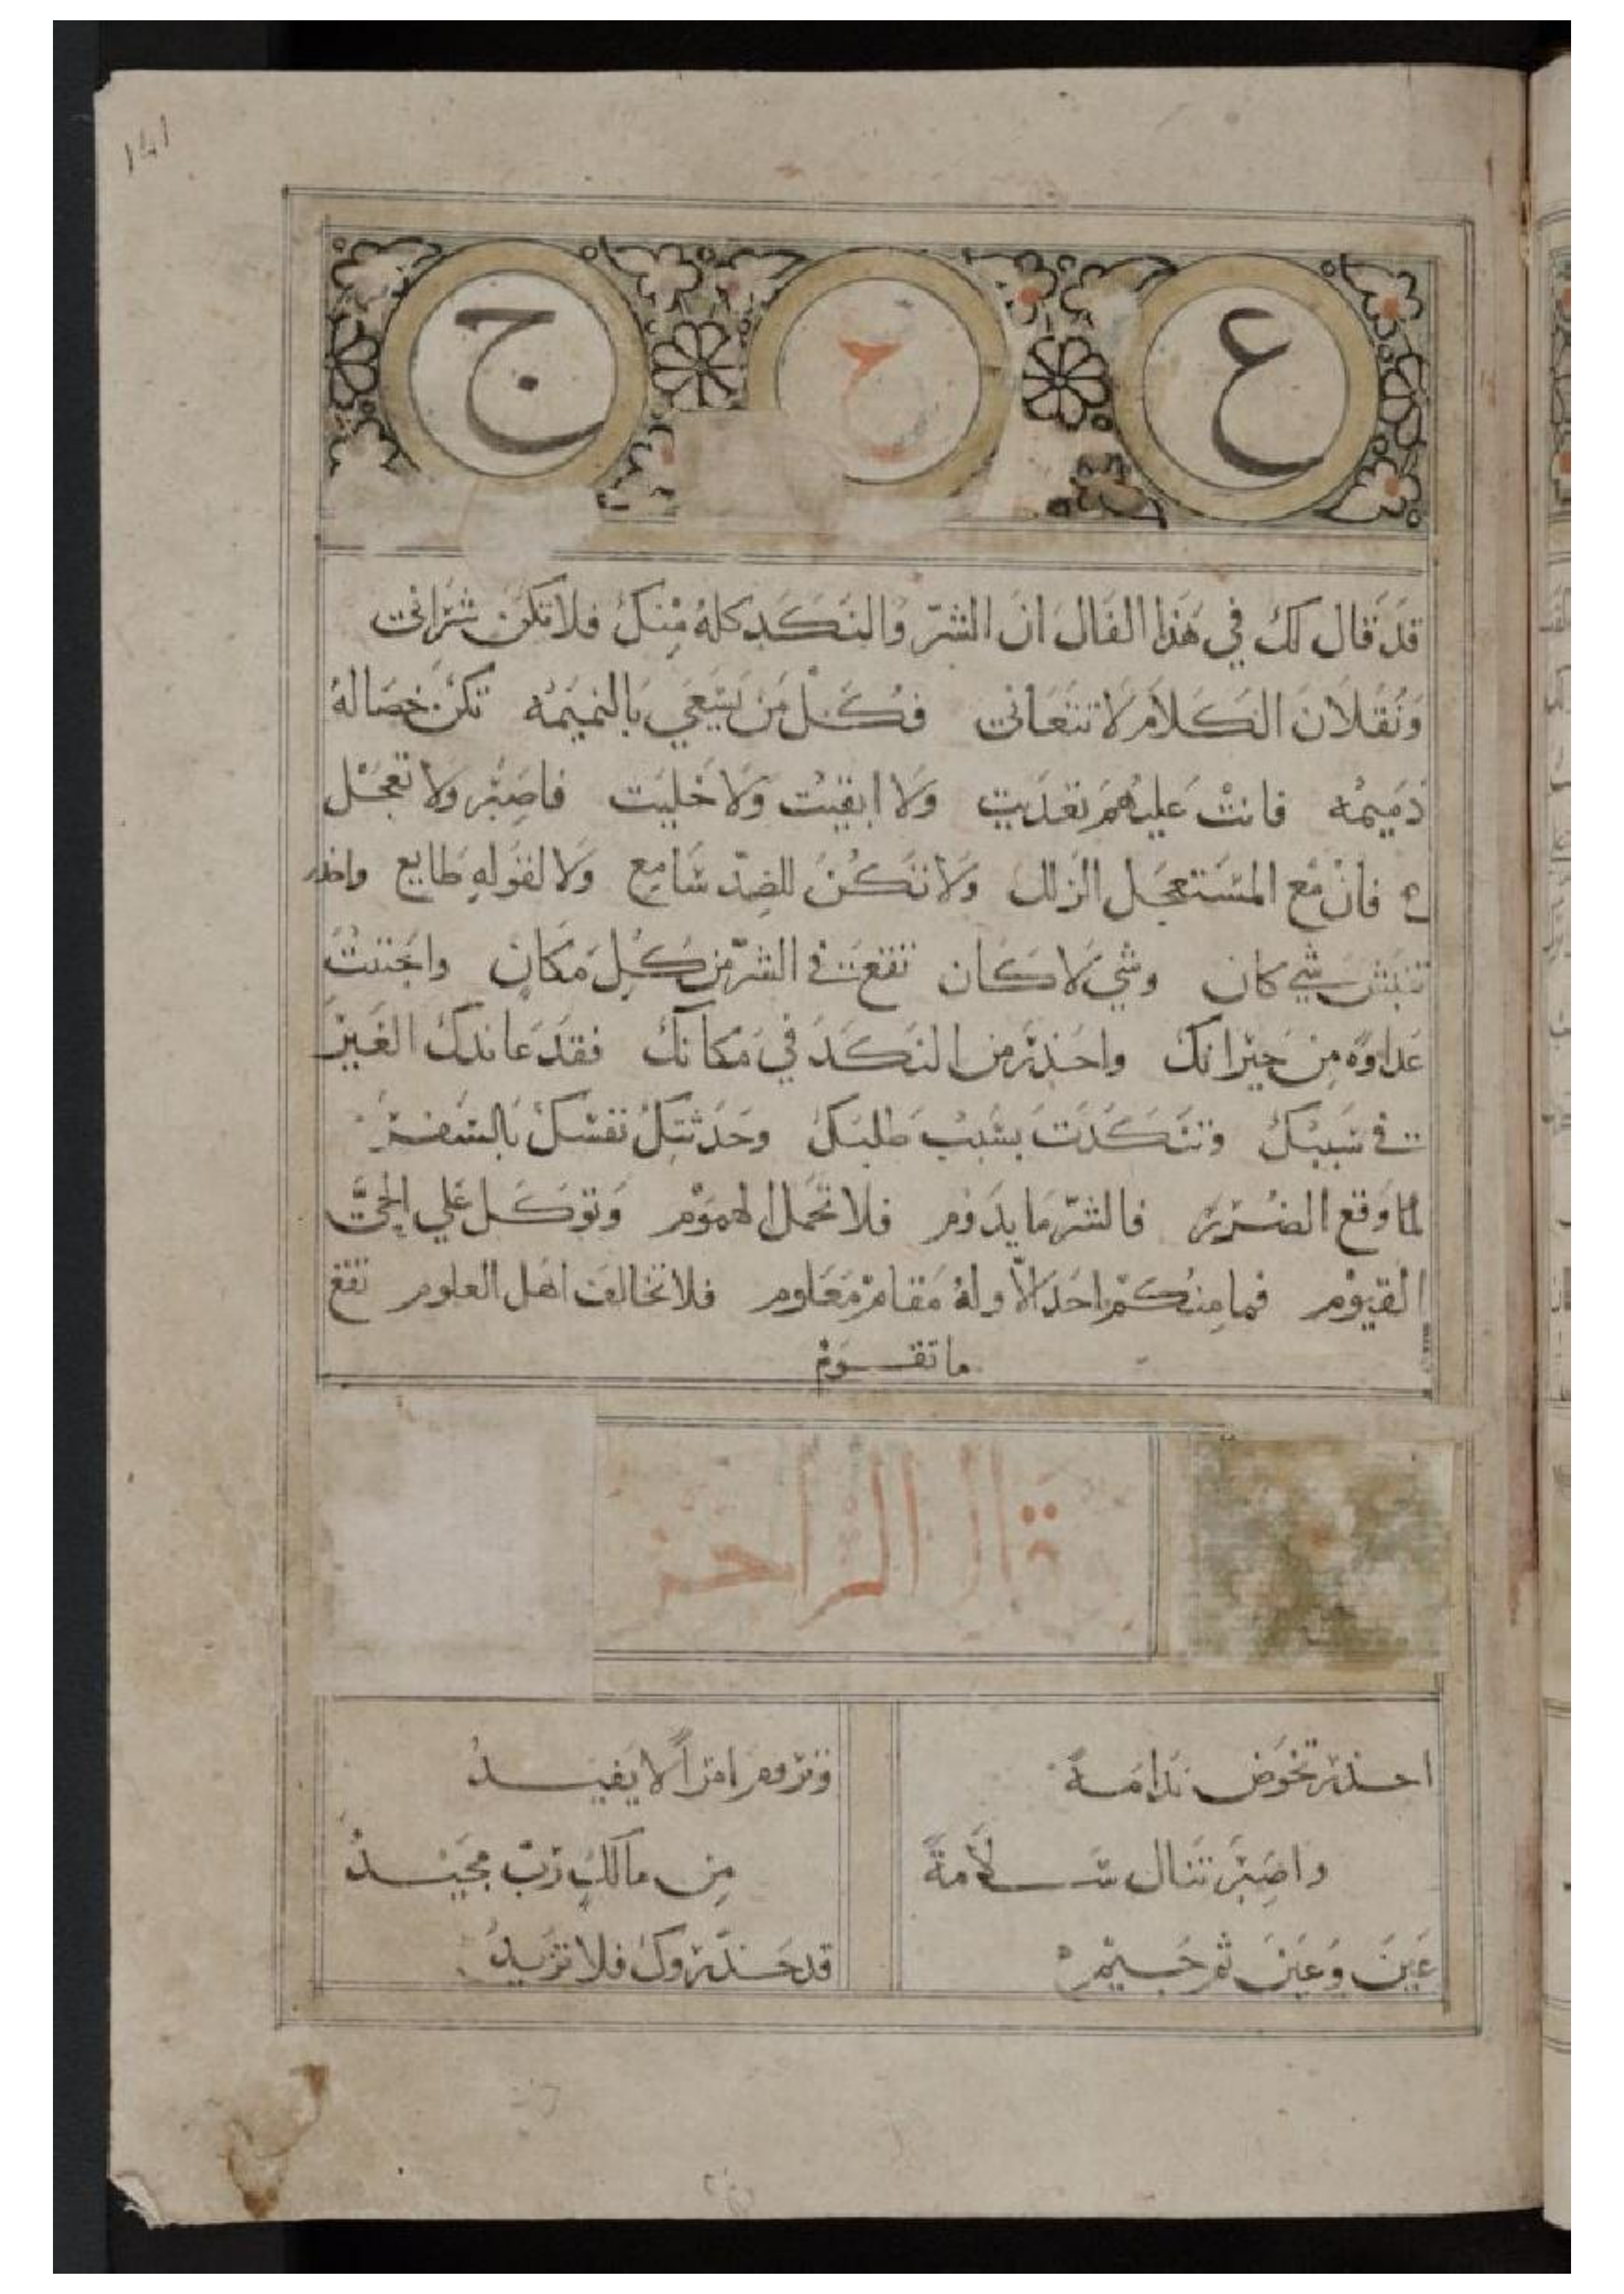 ١٤١
ع ح ج
قد قال لك في هذا الفال ان الشر والنكد كله منك فلا تكن شراني
ونقلان الكلام لا تتعاني فكل من يسعي بالنميمه تكن خصاله
ذميمه فانت عليهم تعديت ولا ابقيت ولا خليت فاصبر ولا تعجل
فان مع المستعجل الزلل ولا تكن للضد سامع ولا لقوله طايع واحذر
تنبش شي كان وشي لا كان تقع في الشر من كل مكان واجتنب
عداوه من جيرانك واحذر من النكد في مكانك فقد عاندك الغير
في سببك وتنكدت بسبب طلبك وحدثتك نفسك بالسفر
لما وقع الضرر فالشر ما يدوم فلا تحمل الهموم وتوكل علي الحي
القيوم فما منكم احد الا وله مقام معلوم فلا تخالف اهل العلوم تقع
ما تقوم
قال الراجز
احذر تخوض ندامة وتروم امرا لا يفيد
واصبر تنال سلامة من مالك رب مجيد
عين وعين ثم جيم قد حذروك فلا تزيد